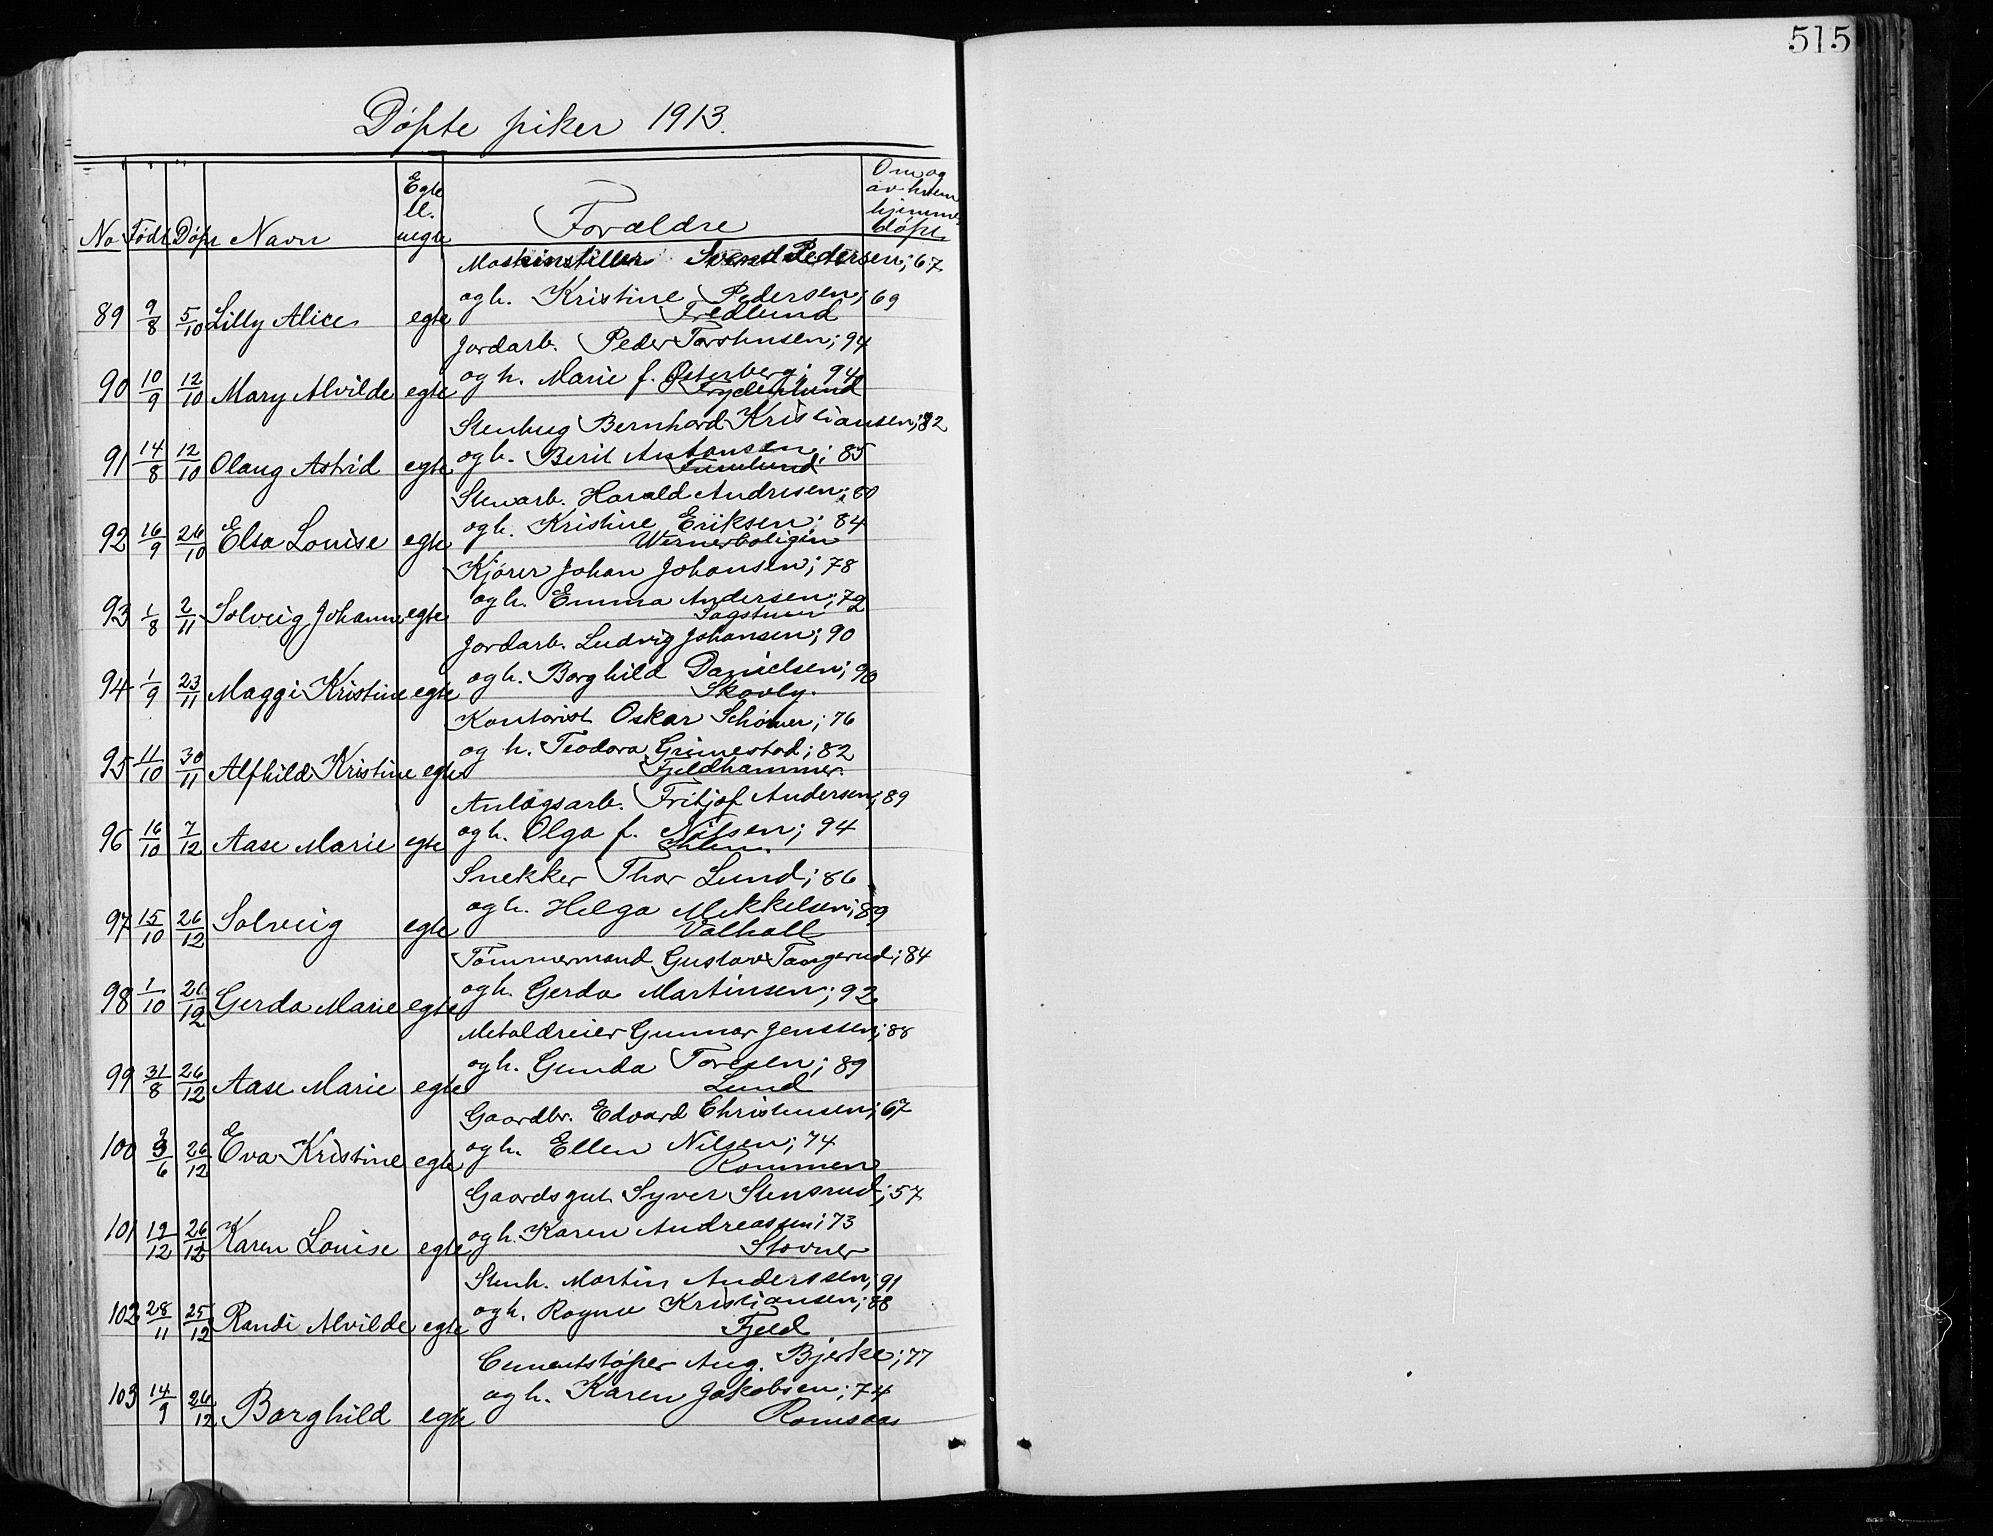 515
Døpte piker 1913.
No Født Døpt Navn Egte ell. uegte Forældre Om og av hvem hjemmedøpt
Maskinstiller Svend Pedersen; 67
og h. Kristine Pedersen; 69
89 9/8 5/10 Lilly Alice egte Fredlund
Jordarb. Peder Torstensen; 94
og h. Marie f. Østerberg; 94
90 10/9 12/10 Mary Alvilde egte Frydenlund
Stenhug Bernhard Kristiansen; 82
og h. Berit Antonsen; 85
91 14/8 12/10 Olaug Astrid egte Furulund
Stenarb. Harald Andresen; 80
og h. Kristine Eriksen; 84
92 16/9 26/10 Elsa Louise egte Wernerboligen
Kjører Johan Johansen; 78
og h. Emma Andersen; 79
93 1/8 2/11 Solveig Johanne egte Sagstuen
Jordarb. Ludvig Johansen; 90
og h. Borghild Danielsen; 90
94 1/9 23/11 Maggi Kristine egte Skovly.
Kontorist Oskar Schøner; 76
og h. Teodora Grimestad; 82
95 11/10 30/11 Alfhild Kristine egte Fjeldhammer.
Anlægsarb. Fritjof Andersen; 89
og h. Olga f. Nilsen; 94
96 16/10 7/12 Aase Marie egte
Snekker Thor Lund; 86
og h. Helga Mikkelsen; 89
97 15/10 26/12 Solveig egte Valhall
Tømmermand Gustav Tangerud; 84
og h. Gerda Martinsen; 92
98 1/10 26/12 Gerda Marie egte
Metaldreier Gunnar Jenssen; 88
og h. Gunda Toresen; 89
99 31/8 26/12 Aase Marie egte Lund
Gaardbr. Edvard Christensen; 67
og h. Ellen Nilsen; 74
100 9/6 26/12 Eva Kristine egte Rommen
Gaardsgut Syver Stensrud; 57
og h. Karen Andreassen; 73
101 19/12 26/12 Karen Louise egte Stovner
Stenh. Martin Anderssen; 91
og h. Ragna Kristiansen; 88
102 28/11 25/12 Randi Alvilde egte Fjeld
Cementstøper Aug. Bjerke; 77
og h. Karen Jakobsen; 74
103 14/9 26/12 Borghild egte Romsaas